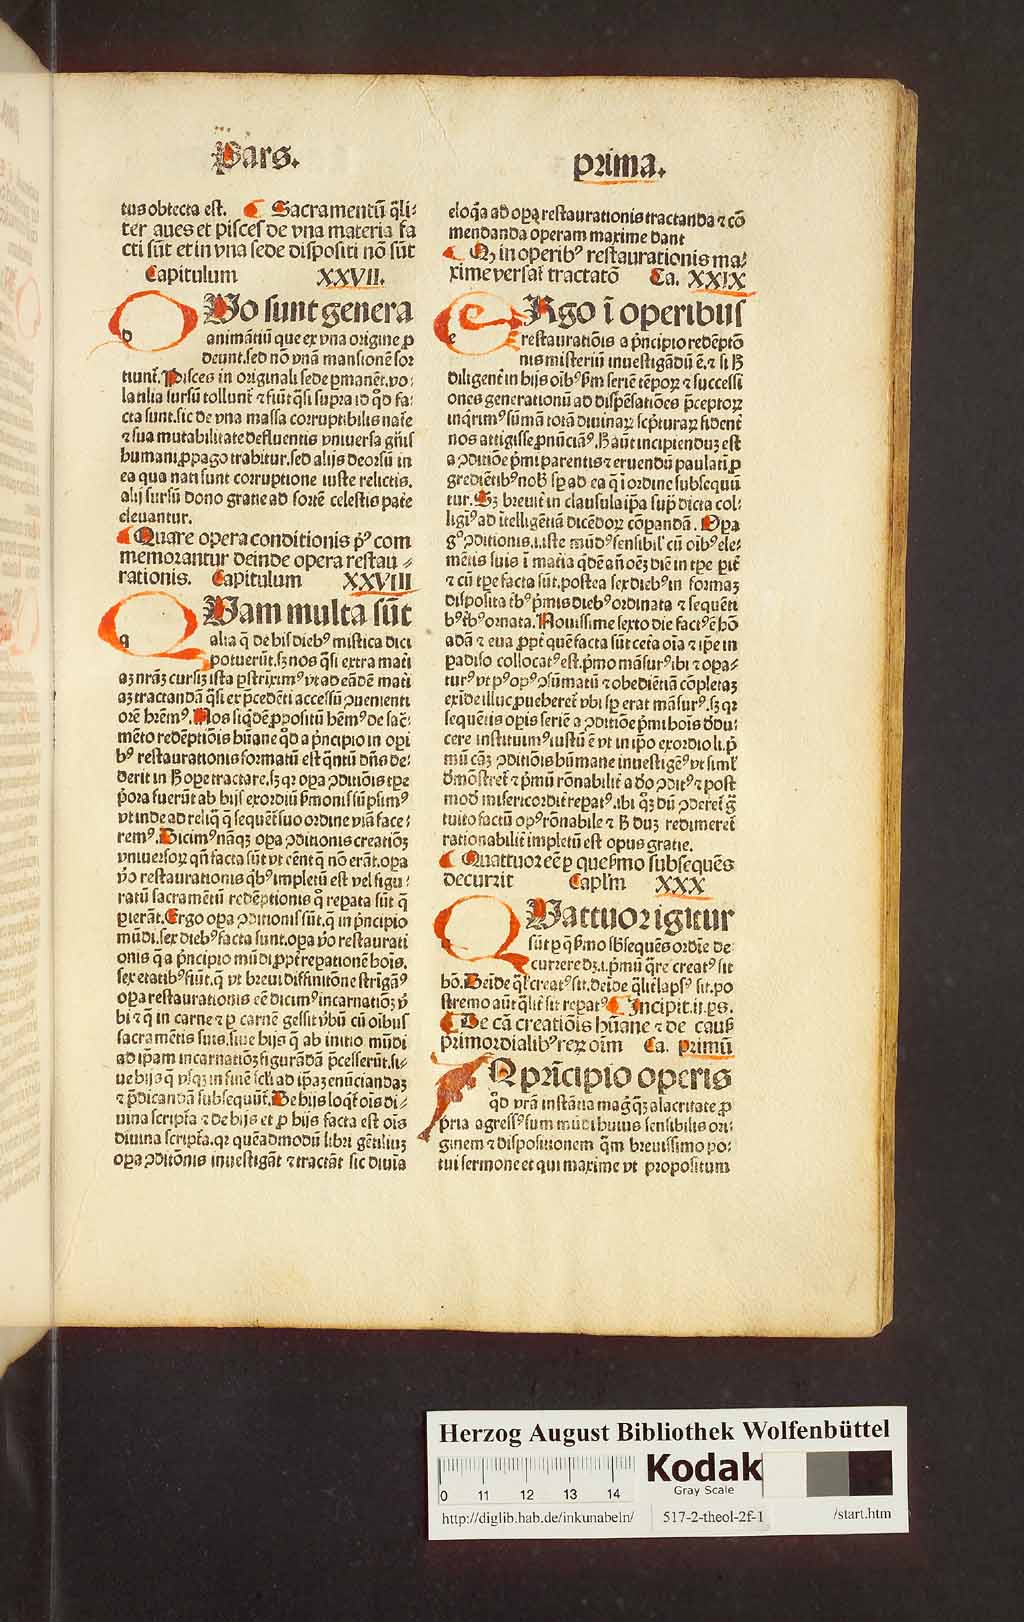 Pars.
prima.
tus obtecta est. Sacramentū q̄li-
ter aues et pisces de vna materia fa
cti sūt et in vna sede dispositi nō sūt
Capitulum XXVII.
DVo sunt genera
animātiū que ex vna origine ꝓ
deunt. sed nō vnā mansionē sor
tiunt᷑. Pisces in originali sede ꝑmanēt. vo-
latilia sursū tollunt᷑ ⁊ fiūt q̄si supra id qḋ fa-
cta sunt. sic de vna massa corruptibilis nat᷑e
⁊ sua mutabilitate defluentis vniuersa gn̄is
humani ꝓpago trahitur. sed alijs deorsū in
ea qua nati sunt corruptione iuste relictis.
alij sursū dono gratie ad sortē celestis pat᷑e
eleuantur.
Quare opera conditionis pꝰ com
memorantur deinde opera restau-
rationis. Capitulum XXVIII
QVam multa sūt
alia q̄ de his diebꝰ mistica dici
potuerūt. sꝫ nos q̄si extra mat᷑i
aꝫ nr̄aꝫ cursiꝫ ista ꝑstriximꝰ vt ad eādē mat᷑i
aꝫ tractandā q̄si ex p̄cedēti accessū ꝓuenienti
orē brēmꝰ. Nos siqͥdē ꝓpositū hēmꝰ de sac̄-
mēto redēptiōis hūane qḋ a pͥncipio in oꝑi
bꝰ restaurationis formatū est q̄ntū dn̄s de-
derit in ħ oꝑe tractare. sꝫ qꝛ oꝑa ꝯditiōis tꝑe
pͥora fuerūt ab hijs exordiū p̄monis sūpsimꝰ
vt inde ad reliqͣ q̄ sequēt᷑ suo ordine viā face-
remꝰ. Dicimꝰ nāqꝫ oꝑa ꝯditionis creatiōꝫ
vniuersoꝝ qn̄ facta sūt vt eēnt q̄ nō erāt. oꝑa
v̊o restaurationis qͥbꝰ impletū est vel figu-
ratū sacramētū redēptionis qͦ reꝑata sūt q̄
ꝑierāt. Ergo oꝑa ꝯditionis sūt. q̄ in pͥncipio
mūdi. sex diebꝰ facta sunt. oꝑa v̊o restaurati
onis q̄ a pͥncipio mūdi ꝓpt᷑ reꝑationē hoīs.
sex etatibꝰ fiūt. q̄ vt breui diffinitiōne strīgāꝰ
oꝑa restaurationis eē dicimꝰ incarnatiōꝫ v̊
bi ⁊ q̄ in carne ⁊ ꝑ carnē gessit v̊bū cū oībus
sacramētis suis. siue hijs q̄ ab initio mūdi
ad ip̄am incarnatiōꝫ figurādā p̄cesserūt. si-
ue hijs q̄ vsqꝫ in finē sc̄li ad ip̄aꝫ enūciandaꝫ
⁊ p̄dicandā subsequūt᷑. De hijs loqͥt᷑ oīs di-
uina scriptᷓa ⁊ de hijs et ꝓ hijs facta est oīs
diuina scriptᷓa. qꝛ quēadmodū libri gētiliuꝫ
oꝑa ꝯditōnis inuestigāt ⁊ tractāt sic diuīa
eloqͥa ad oꝑaꝝ restaurationis tractanda ⁊ cō
mendanda operam maxime dant
Qꝫ in operibꝰ restaurationis ma-
xime versat᷑ tractatō Ca. XXIX
ERgo ī operibus
restauratiōis a pͥncipio redēptō
nis misteriū inuestigādū ē. ⁊ si ħ
diligent᷑ in hijs oībꝰ ẜm seriē tēpoꝝ ⁊ successi
ones generationū ad dispēsatiōes p̄ceptoꝝ
inqͥrimꝰ sūmā totā diuinaꝝ scpͥturaꝝ fident᷑
nos attigisse ꝓnūciāꝰ. ħ aūt incipienduꝫ est
a ꝑditiōe pͥmi parentis ⁊ eruendū paulati᷑ ꝓ
gredientibꝰ nob̄ sꝑ ad ea q̄ ī ordine subsequū
tur. Sꝫ breuit᷑ in clausula ip̄a supͣ dicta col-
ligiꝰ ad ītelligētiā dicēdoꝝ cōpandā. Opa
gͦ ꝯditionis. i. iste mūdꝰ sensibil᷑ cū oībꝰ ele-
mētis suis ī mat᷑ia qͥdē an̄ oēꝫ diē in tꝑe pͥt᷑
⁊ cū tꝑe facta sūt. postea sex diebꝰ in formaꝫ
disposita tͥbꝰ pͥmis diebꝰ ordinata ⁊ sequēti
bꝰ tͥbꝰ ornata. Nouissime sexto die factꝰ ē hō
adā ⁊ eua ꝓpt᷑ quē facta sūt cet᷑a oīa ⁊ ip̄e in
ꝑadiso collocatꝰ est. pͥmo māsurꝰ ibi ⁊ oꝑa-
turꝰ vt pꝰ opꝰ ꝯsūmatū ⁊ obediētiā cōpletaꝫ
exīde illuc ꝓueheret᷑ vbi sꝑ erat māsurꝰ. sꝫ qꝛ
sequētis oꝑis seriē a ꝯditiōe pͥmi hoīs dedu-
cere instituimꝰ iustū ē vt in ip̄o exordio li. pͥ
mū cāꝫ ꝯditiōis hūmane inuestigēꝰ vt simil᷑
demōstret᷑ ⁊ pͥmū rōnabilit᷑ a deo ꝯditꝰ ⁊ post
modū misericordit᷑ reꝑatꝰ. ibi qͣꝫ dū ꝯderet᷑ gͣ
tuito factū opꝰ rōnabile ⁊ ħ duꝫ redimeret᷑
rationabilit᷑ impletū est opus gratie.
Quattuor eē ꝑ que ẜmo subsequēs
decurrit Capl̄m XXX
QVattuor igitur
sūt ꝑ q̄ ẜmo sb̄sequēs ordīe de
currere dꝫ. i. pͥmū qͣre creatꝰ sit
hō. Deīde q̄l᷑ creatꝰ sit. deīde q̄lit᷑ lapsꝰ sit. po
stremo aūt q̄lit᷑ sit reꝑatꝰ Incipit. ij. ps.
De cā creatiōis hūane ⁊ de causꝭ
primordialibꝰ reꝝ oīm Ca. primū
A Prīcipio operis
qḋ vrā instātia mag̊qꝫ alacritate ꝓ
pͥria agressꝰ sum mūdi huius sensibilis ori-
ginem ⁊ dispositionem qͣm breuissimo po-
tui sermone et qui maxime vt propositum
Herzog August Bibliothek Wolfenbüttel
0 11 12 13 14
Kodak
Gray Scale
http://diglib.hab.de/inkunabeln/ 517-2-theol-2f-1 /start.htm